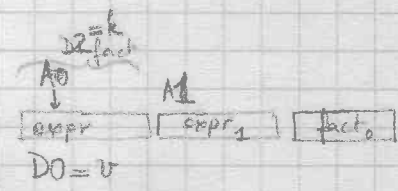 D2=k
fact
A0 A1
expr expr₁ fact₀
D0=v